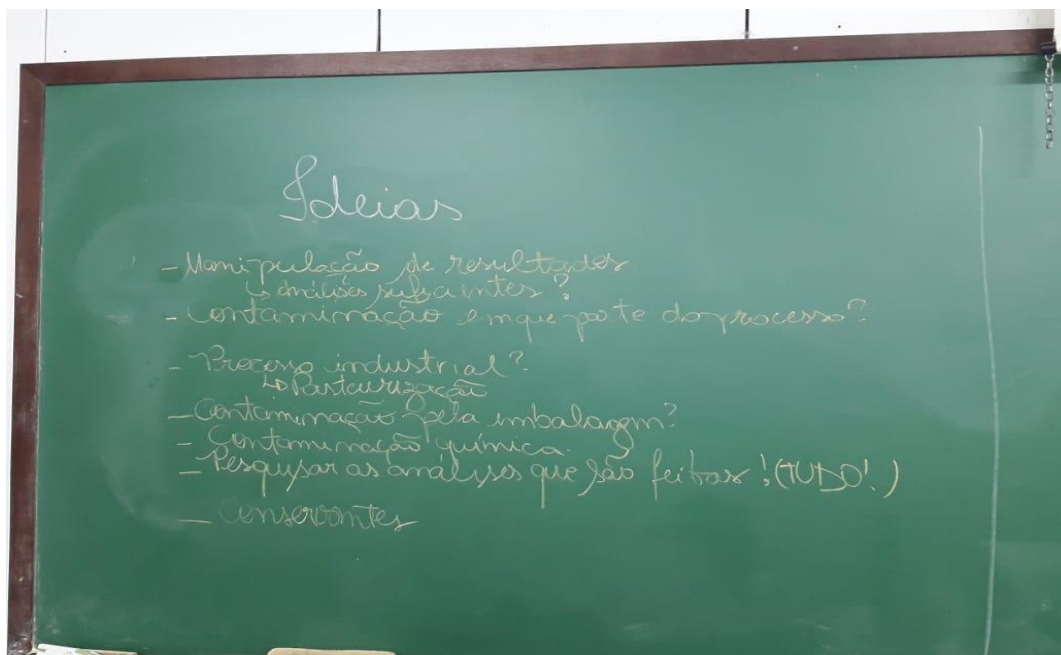 Ideias
- Manipulação de resultados
↳ análises suficientes?
- Contaminação em que parte do processo?
- Processo industrial?
↳ Pasteurização
- Contaminação pela embalagem?
- Contaminação química.
- Pesquisar as análises que são feitas! (TUDO!)
- Conservantes